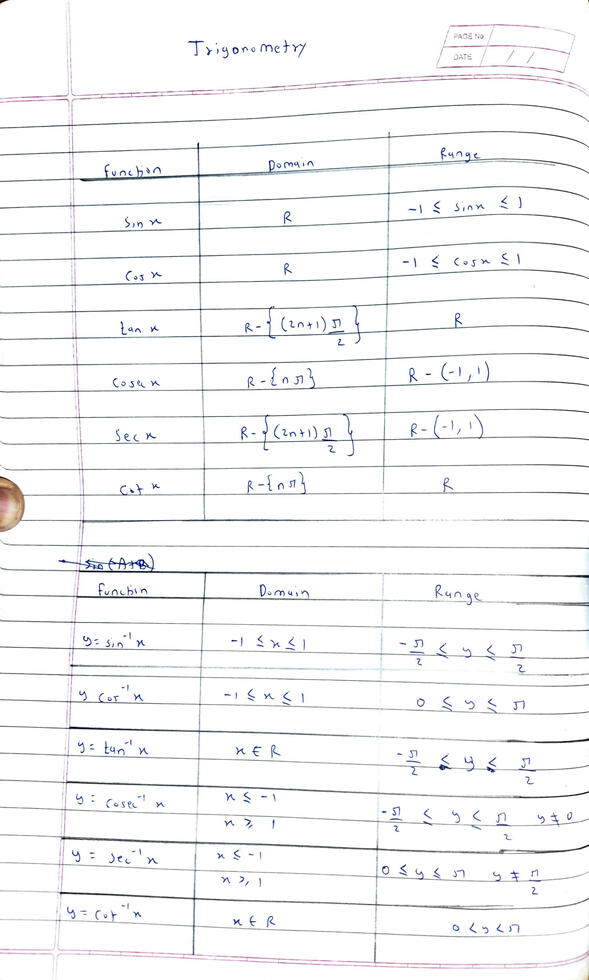 Trigonometry
PAGE No
DATE / /
Function Domain Range
Sin x R -1 ≤ sinx ≤ 1
Cos x R -1 ≤ cosx ≤ 1
tan x R-{(2n+1)π/2} R
Cosec x R-{nπ} R-(-1,1)
Sec x R-{(2n+1)π/2} R-(-1,1)
Cot x R-{nπ} R
Sin (A+B)
Function Domain Range
y= sin⁻¹x -1 ≤ x ≤ 1 -π/2 ≤ y ≤ π/2
y cos⁻¹x -1 ≤ x ≤ 1 0 ≤ y ≤ π
y= tan⁻¹x x ∈ R -π/2 < y < π/2
y= cosec⁻¹x x ≤ -1 -π/2 ≤ y ≤ π/2 y ≠ 0
x ≥ 1
y = sec⁻¹x x ≤ -1 0 ≤ y ≤ π y ≠ π/2
x ≥ 1
y= cot⁻¹x x ∈ R 0 < y < π